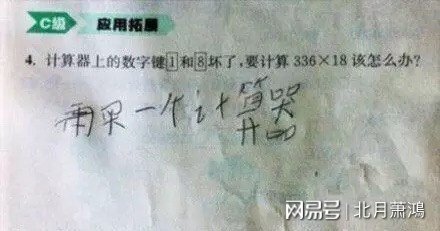 C级 应用拓展
4. 计算器上的数字键1和8坏了,要计算 336×18 该怎么办?
再买一个计算器
网易号 | 北月萧鸿